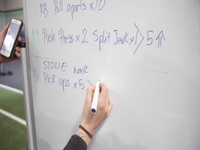 Pull aparts x10
Push Press x2 Split Jerk x1 > 5 ↑
STONE work
Pick ups x5 >